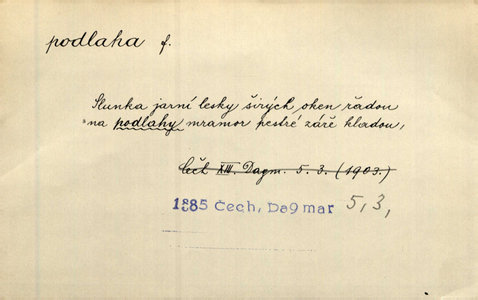 podlaha f.
Slunka jarní lesky širých oken řadou
na podlahy mramor pestré záře kladou,
Čečt XIII. Dagm. 5. 3. (1903.)
1885 Čech, Da9mar 5, 3,